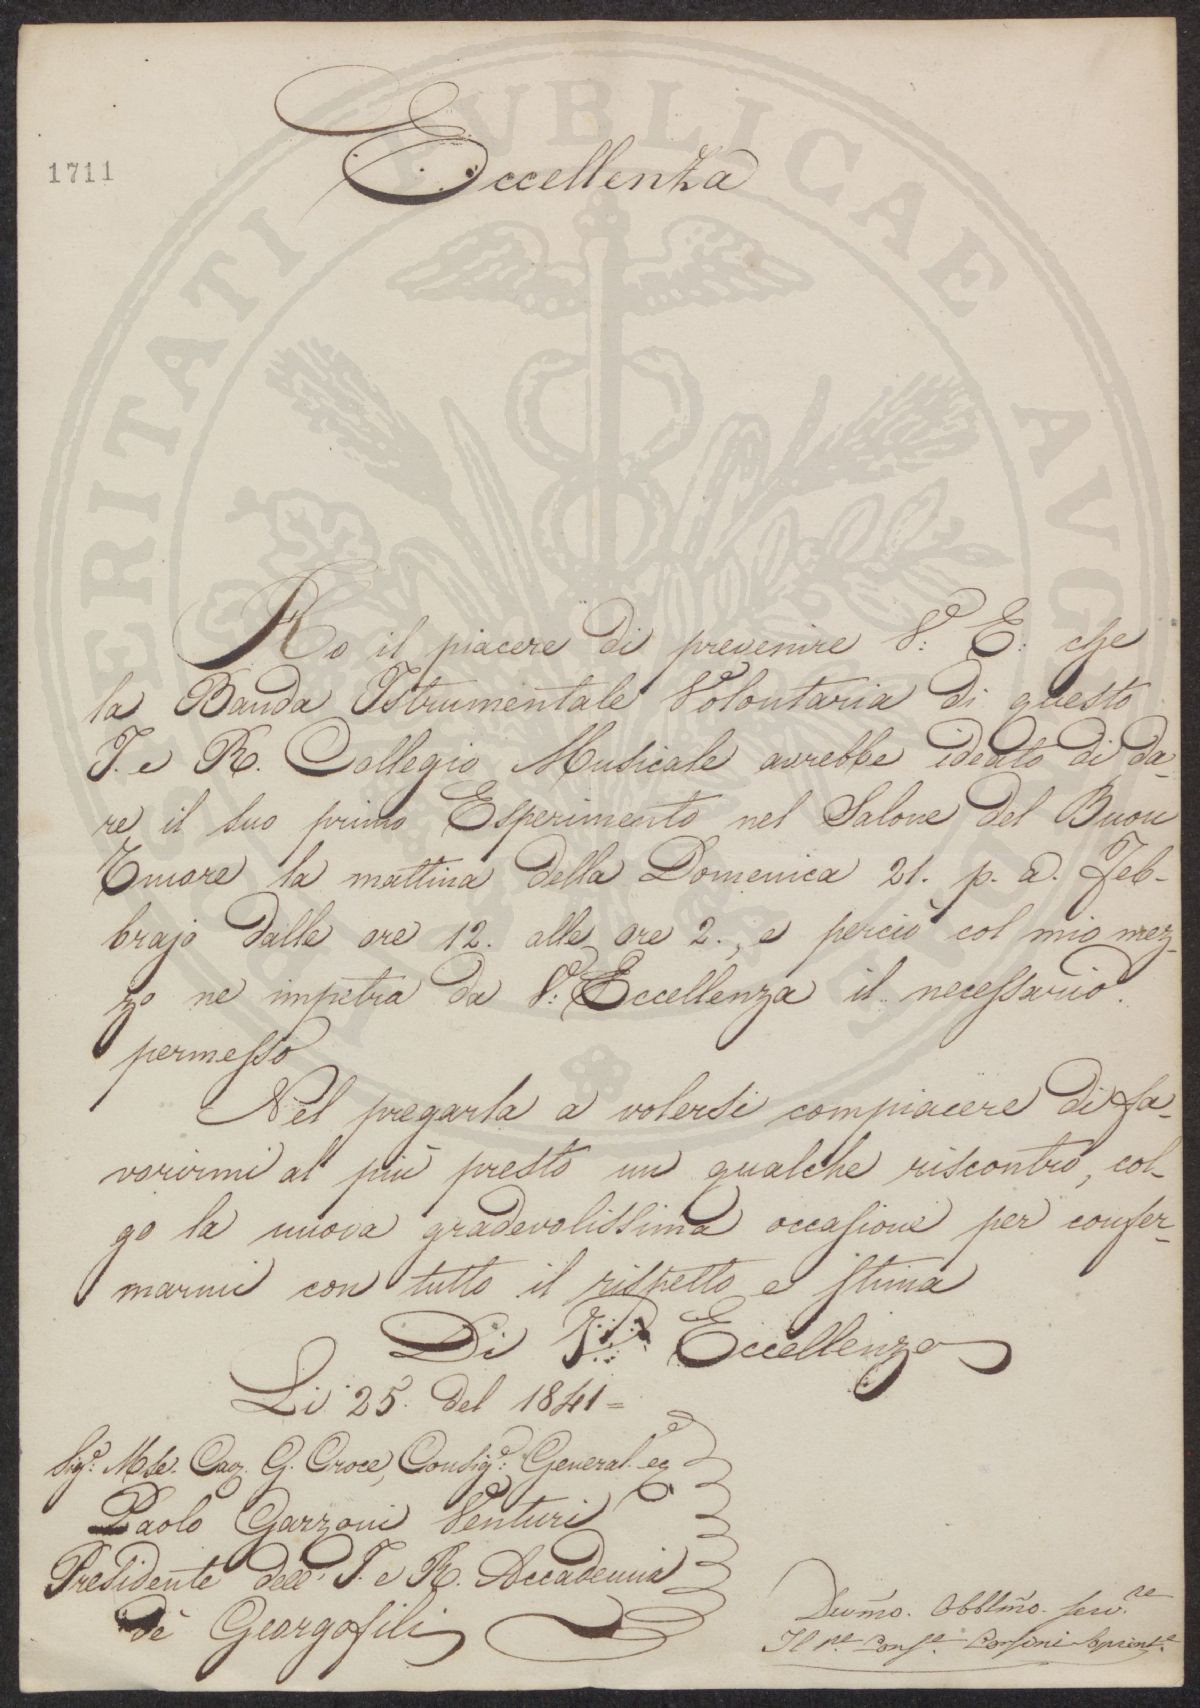 PROSPERITATI PUBLICAE AVGENDAE
1711
Eccellenza
Ho il piacere di prevenire V: E: che
la Banda Istrumentale Volontaria di questo
I. e R. Collegio Musicale avrebbe ideato di da-
re il suo primo Esperimento nel Salone del Buon
Umore la mattina della Domenica 21. p. a. Feb-
brajo dalle ore 12. alle ore 2., e perciò col mio mez-
zo ne impetra da V: Eccellenza il necessario
permesso
Nel pregarla a volersi compiacere di fa-
vorirmi al più presto un qualche riscontro, col-
go la nuova gradevolissima occasione per confer-
marmi con tutto il rispetto e stima
Di Vra Eccellenza
Li 25. del 1841=
Sigr. Mse. Cav. G. Croce, Consigr. General. ec
Paolo Garzoni Venturi
Presidente dell' I. e R. Accademia
de Georgofili
Devmo. Obblmo. serv.re
Il